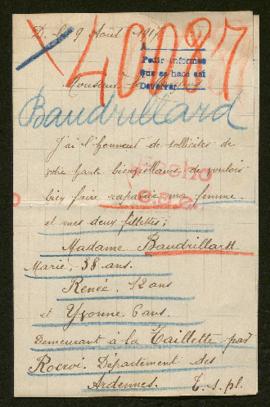 D. le 9 Août 1917
40087
A
Pedir informes
que se hace así
Devolver
Monsieur
Baudrillard
J'ai l'honneur de solliciter de
votre haute bienveillance de vouloir
bien faire rapatrier ma femme
et mes deux fillettes;
Madame Baudrillard
Marie, 38 ans.
Renée, 12 ans
et Yvonne 6 ans.
Demeurant à la Taillette par
Rocroi. Département des
Ardennes. T. s. pl.